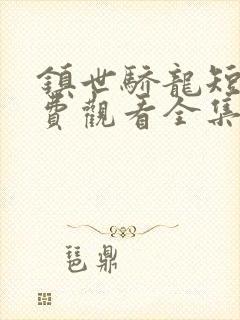 鎮世驕龍短
費觀看全集
琶鼎